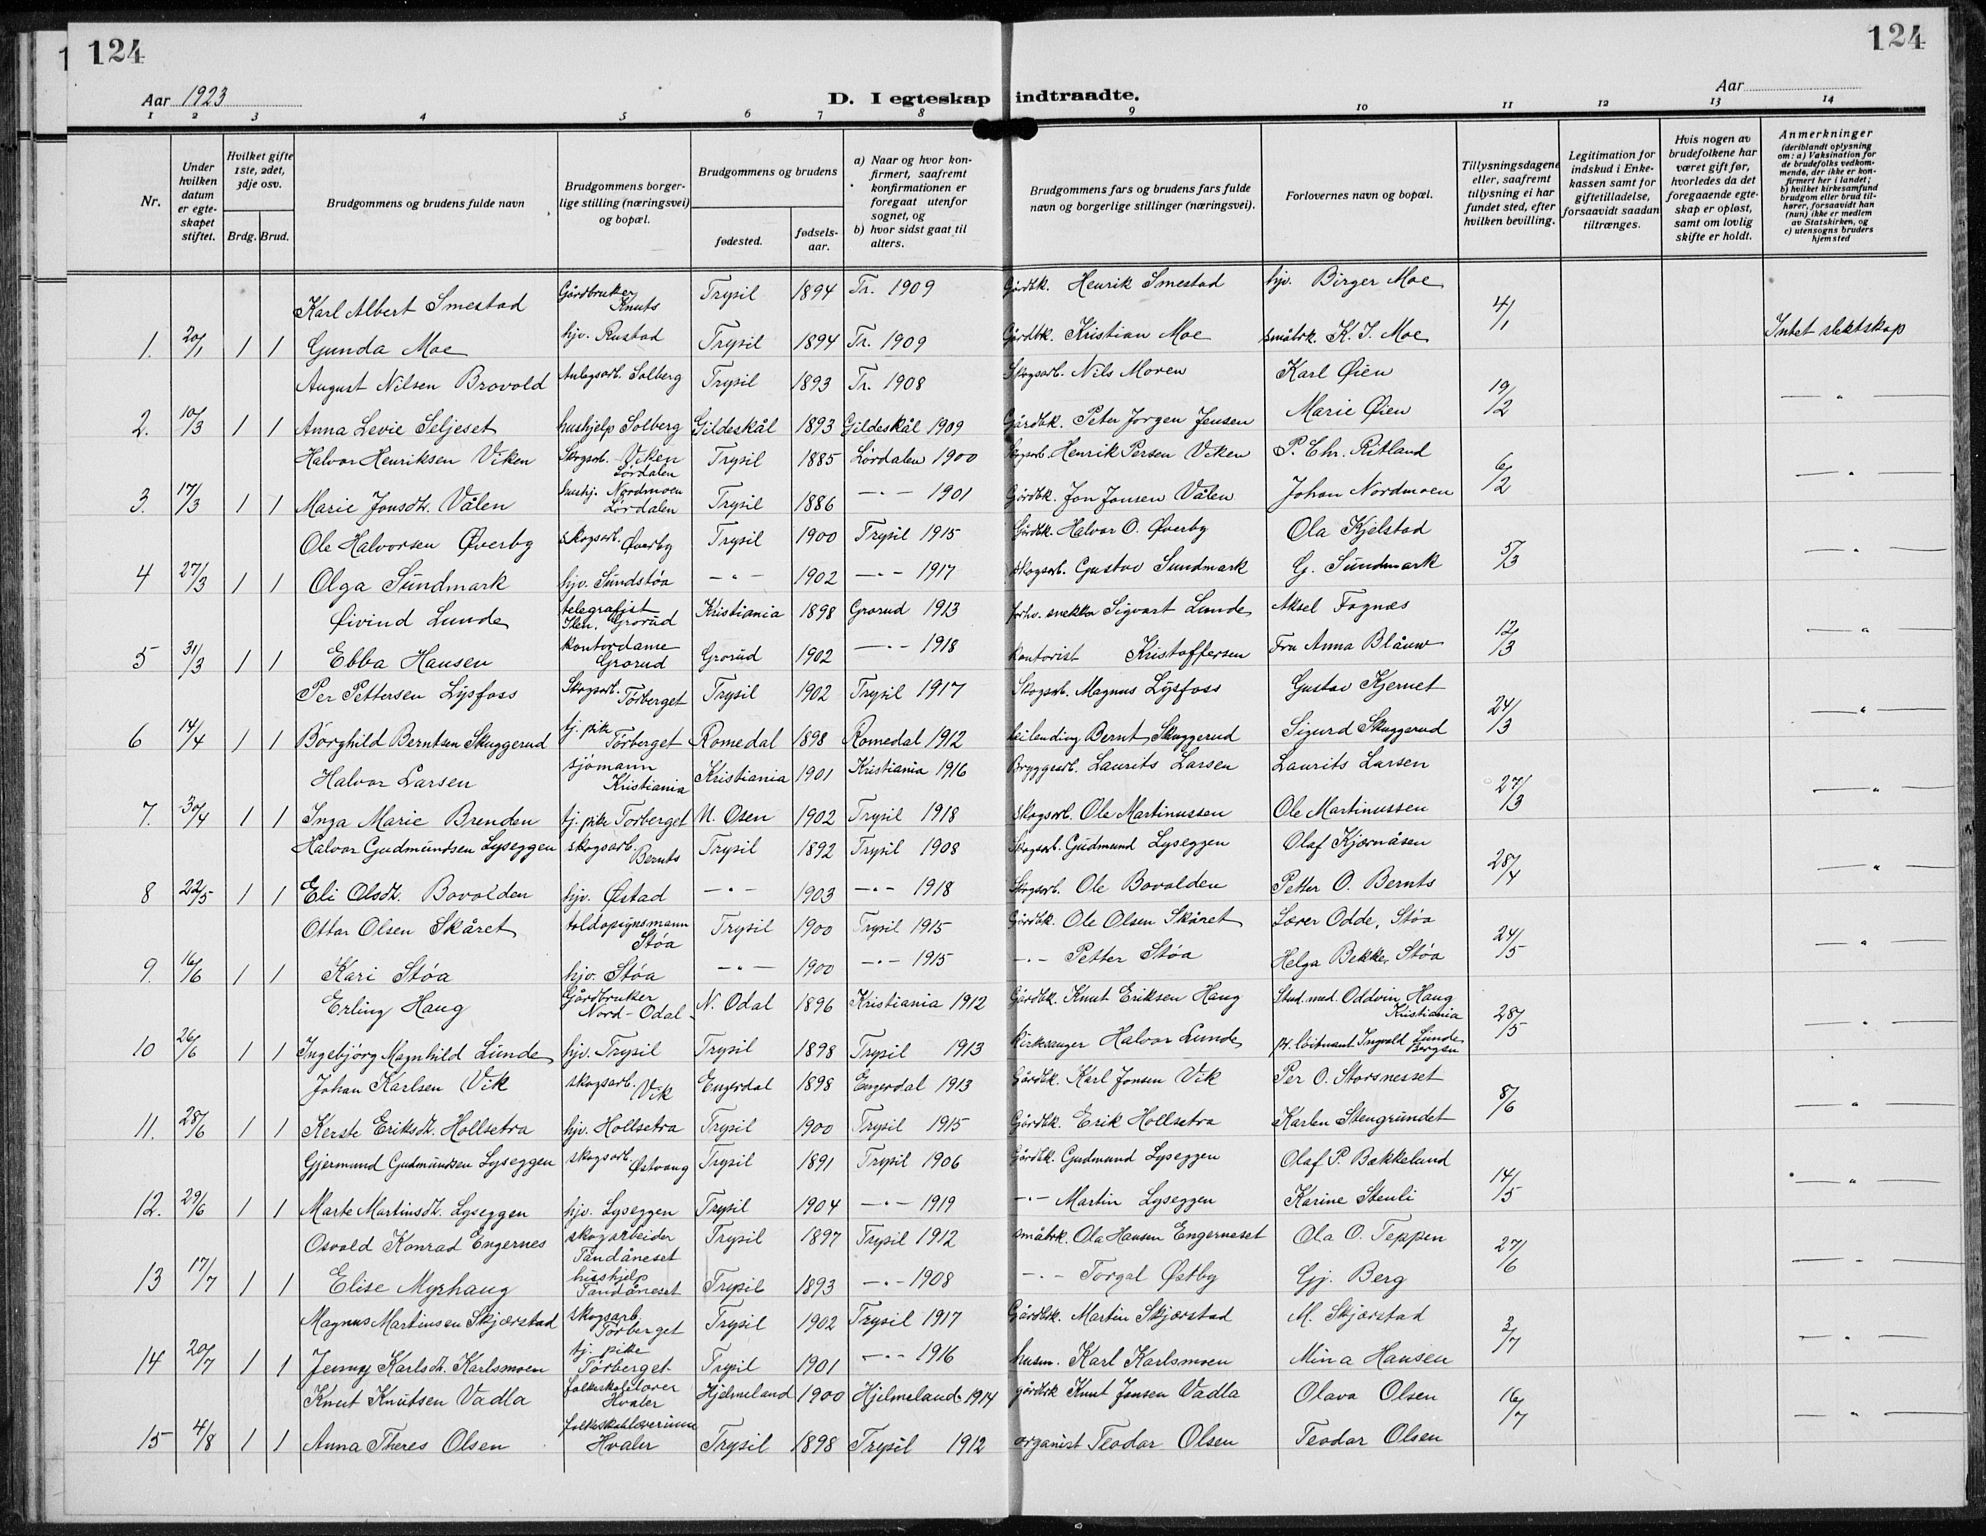 124
124
Aar 1923
D. I egteskap indtraadte.
Aar
1 2 3 4 5 6 7 8 9 10 11 12 13 14
Nr.
Under hvilken datum er egteskapet stiftet.
Hvilket gifte 1ste, 2det, 3dje osv.
Brdg. Brud.
Brudgommens og brudens fulde navn
Brudgommens borgerlige stilling (næringsvei) og bopæl.
Brudgommens og brudens
fødested.
fødselsaar.
a) Naar og hvor konfirmert, saafremt konfirmationen er foregaat utenfor sognet, og
b) hvor sidst gaat til alters.
Brudgommens fars og brudens fars fulde navn og borgerlige stillinger (næringsvei).
Forlovernes navn og bopæl.
Tillysningsdagene eller, saafremt tillysning ei har fundet sted, efter hvilken bevilling.
Legitimation for indskud i Enkekassen samt for giftetilladelse, forsaavidt saadan tiltrænges.
Hvis nogen av brudefolkene har været gift før, hvorledes da det foregaaende egteskap er opløst, samt om lovlig skifte er holdt.
Anmerkninger (deriblandt oplysning om: a) Vaksination for de brudefolks vedkommende, der ikke er konfirmert her i landet; b) hvilket kirkesamfund brudgom eller brud tilhører, forsaavidt han (hun) ikke er medlem av Statskirken, og c) utensogns bruders hjemsted
Karl Albert Smestad Gårdbruker Knuts Trysil 1894 Tr. 1909 Gårdbk. Henrik Smestad hjv. Birger Moe 4/1
1. 20/1 1 1 Gunda Moe hjv. Rustad Trysil 1894 Tr. 1909 Gårdbk. Kristian Moe småbrk. K. J. Moe Intet slektskap
August Nilsen Brovold Anlegsarb. Solberg Trysil 1893 Tr. 1908 Skogsarb. Nils Moren Karl Øien 19/2
2. 10/3 1 1 Anna Levie Seljeset hushjelp Solberg Gildeskål 1893 Gildeskål 1909 Gårdbk. Peter Jørgen Jensen Marie Øien — " —
Halvor Henriksen Viken Skogsarb. Viken Lördalen Trysil 1885 Lördalen 1900 Skogsarb. Henrik Persen Viken P. Chr. Ritland 6/2
3. 17/3 1 1 Marie Jonsdt. Vålen hushj. Nordmoen Lördalen Trysil 1886 — " — 1901 Gårdbk. Jon Jonsen Vålen Johan Nordmoen — " —
Ole Halvorsen Øverby skogsarb. Øverby Trysil 1900 Trysil 1915 Gårdbk. Halvor O. Øverby Ola Kjelstad 5/3
4 27/3 1 1 Olga Sundmark hjv. Sundstøa — " — 1902 — " — 1917 skogsarb. Gustav Sundmark G. Sundmark — " —
Øivind Lunde telegrafist Grorud Kristiania 1898 Grorud 1913 forhv. snekker Sigvart Lunde Aksel Fagnæs 12/3
5 31/3 1 1 Ebba Hansen kontordame Grorud Grorud 1902 — " — 1918 kontorist Kristoffersen Fru Anna Blåuw — " —
Per Pettersen Lysfoss Skogsarb. Törberget Trysil 1902 Trysil 1917 Skogsarb. Magnus Lysfoss Gustav Kjernet 24/3
6 14/4 1 1 Borghild Berntsen Skuggerud tj. pike Törberget Romedal 1898 Romedal 1912 leilending Bernt Skuggerud Sigurd Skuggerud — " —
Halvor Larsen sjømann Kristiania Kristiania 1901 Kristiania 1916 Bryggearb. Laurits Larsen Laurits Larsen 27/3
7. 30/4 1 1 Inga Marie Brenden tj. pike Törberget N. Osen 1902 Trysil 1918 Skogsarb. Ole Martinussen Ole Martinussen — " —
Halvor Gudmundsen Lyseggen skogsarb. Bernts Trysil 1892 Trysil 1908 Skogsarb. Gudmund Lyseggen Olaf Kjærnåsen 28/4
8 22/5 1 1 Eli Olsdt. Bovolden hjv. Østad — " — 1903 — " — 1918 Skogsarb. Ole Bovolden Petter O. Bernts — " —
Ottar Olsen Skåret toldopsynsmann Støa Trysil 1900 Trysil 1915 Gårdbk. Ole Olsen Skåret Lærer Odde, Støa 24/5
9. 16/6 1 1 Kari Støa hjv. Støa — " — 1900 — " — 1915 — " — Petter Støa Helga Bekke, Støa — " —
Erling Haug Gårdbruker Nord-Odal N. Odal 1896 Kristiania 1912 Gårdbk. Knut Eriksen Haug Stud. med. Oddvin Haug Kristiania 28/5
10 26/6 1 1 Ingebjörg Magnhild Lunde hjv. Trysil Trysil 1898 Trysil 1913 Kirkesanger Halvor Lunde pr. löitnant Ingvald Lunde Bergen — " —
Johan Karlsen Vik skogsarb. Vik Engerdal 1898 Engerdal 1913 Gårdbk. Karl Jonsen Vik Per O. Storsnesset 8/6
11. 28/6 1 1 Kerste Eriksdt. Hollsetra hjv. Hollsetra Trysil 1900 Trysil 1915 Gårdbk. Erik Hollsetra Karlen Stengrundet — " —
Gjermund Gudmundsen Lyseggen skogsarb. Østvang Trysil 1891 Trysil 1906 Gårdbk. Gudmund Lyseggen Olaf P. Bakkeland 14/5
12. 29/6 1 1 Marte Martinsdt. Lyseggen hjv. Lyseggen Trysil 1904 — " — 1919 — " — Martin Lyseggen Karine Stenli — " —
Osvald Konrad Engernes skogarbeider Tandåneset Trysil 1897 Trysil 1912 småbrk. Ola Hansen Engerneset Ola O. Teppen 27/6
13 17/7 1 1 Elise Myrhaug hushjelp Tandåneset Trysil 1893 — " — 1908 — " — Torgal Østby Gj. Berg — " —
Magnus Martinsen Skjærstad skogsarb. Törberget Trysil 1902 Trysil 1917 Gårdbk. Martin Skjærstad M. Skjærstad 3/7
14 20/7 1 1 Jenny Karlsdt. Karlsmoen tj. pike Törberget Trysil 1901 — " — 1916 husm. Karl Karlsmoen Mina Hansen — " —
Knut Knutsen Vadla folkeskolelærer Hvaler Hjelmeland 1900 Hjelmeland 1914 gårdbrk Knut Jonsen Vadla Olava Olsen 16/7
15 4/8 1 1 Anna Theres Olsen folkeskolelærerinne Hvaler Trysil 1898 Trysil 1912 organist Teodor Olsen Teodor Olsen — " —